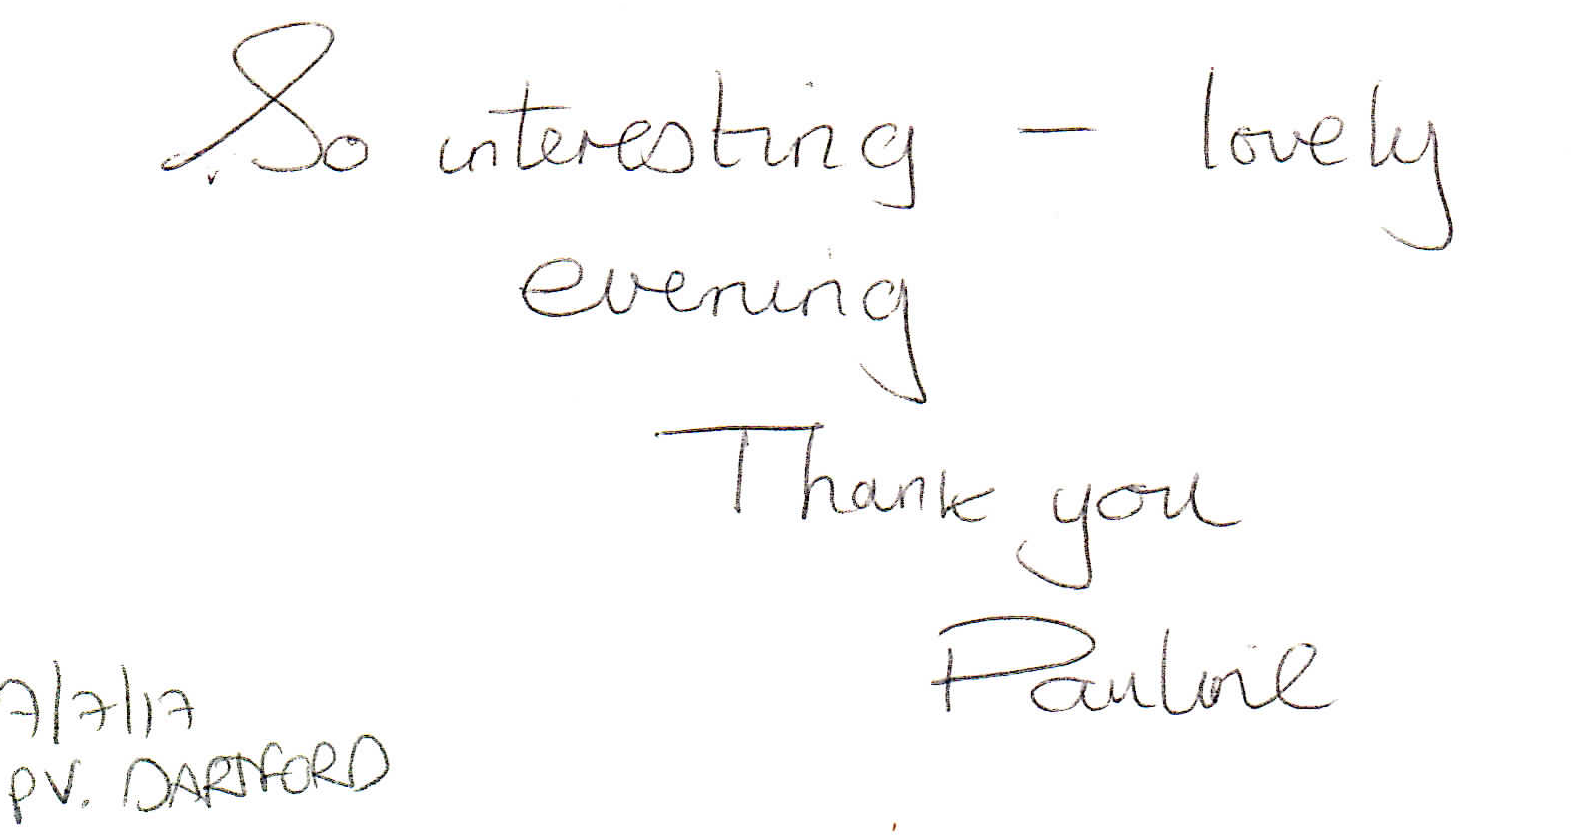 So interesting – lovely
evening
Thank you
Pauline
7/7/17
PV. DARTFORD